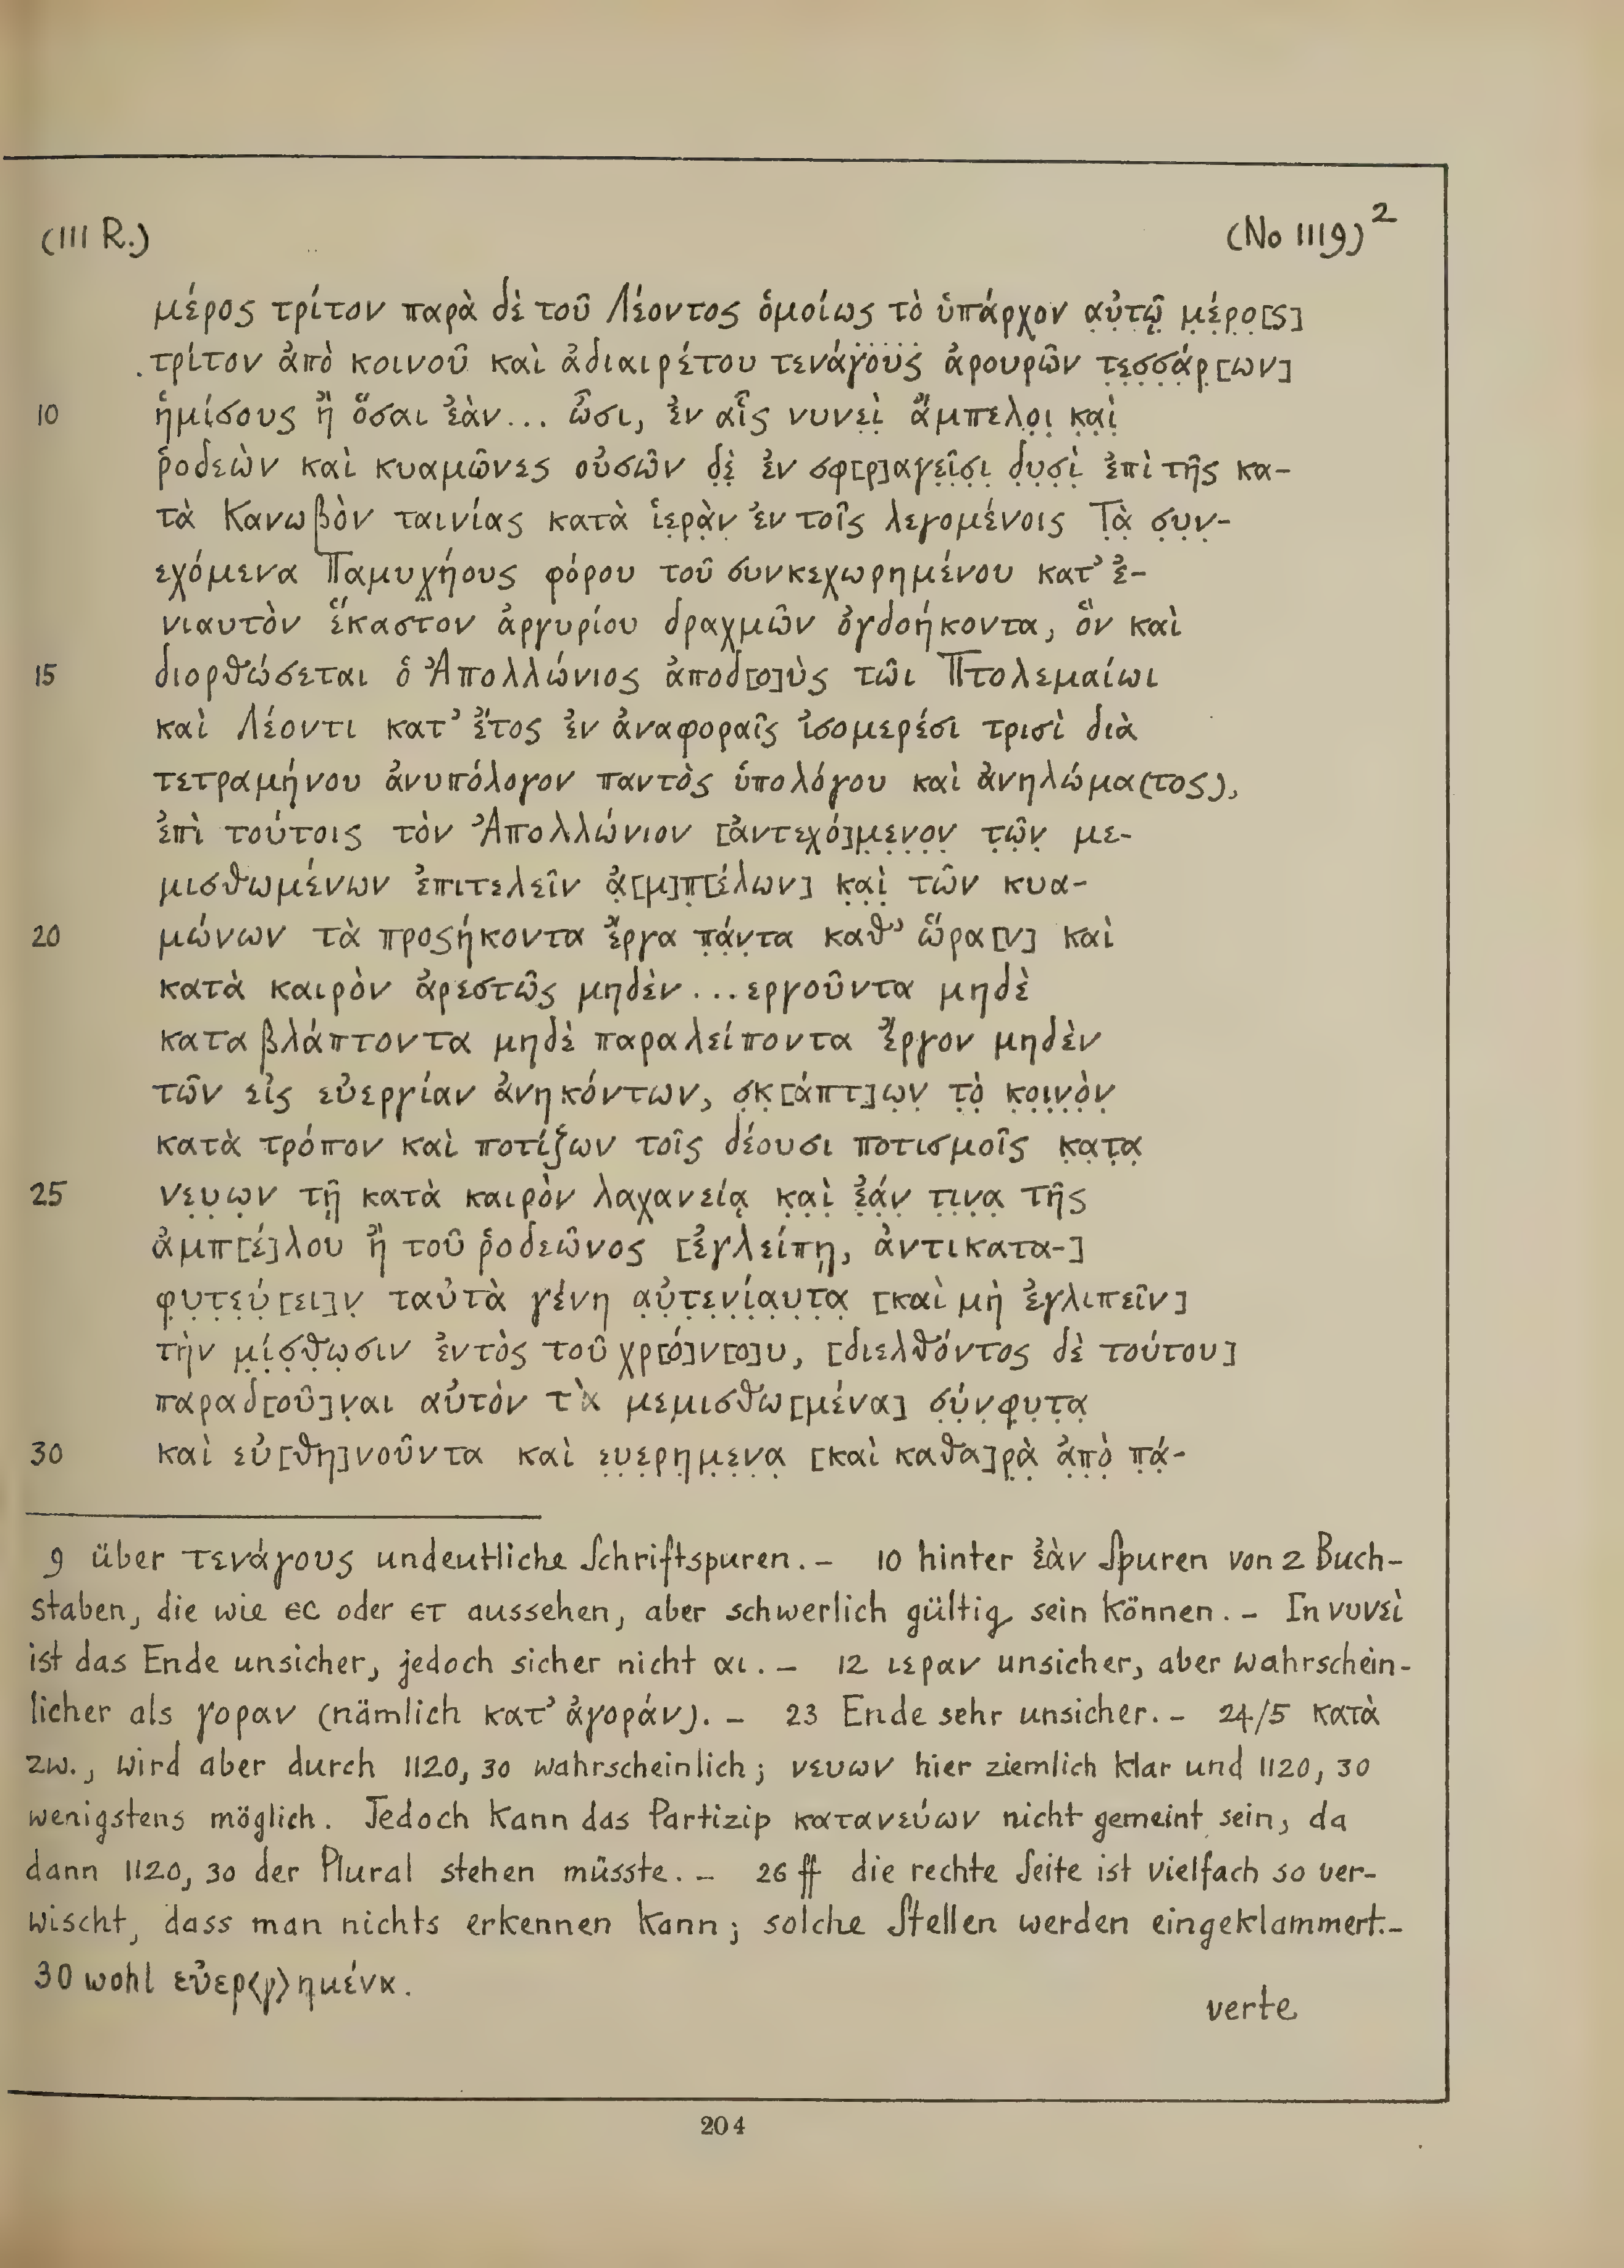 (III R.)
(No 1119)²
μέρος τρίτον παρὰ δὲ τοῦ Λέοντος ὁμοίως τὸ ὑπάρχον α̣ὐ̣τ̣ῷ̣ μ̣έ̣ρ̣ο̣[ς]
τρίτον ἀπὸ κοινοῦ καὶ ἀδιαιρέτου τενάγους ἀρουρῶν τ̣ε̣σ̣σ̣ά̣ρ̣[ων]
10 ἡμίσους ἢ ὅσαι ἐὰν... ὦσι, ἐν αἷς νυνε̣ὶ̣ ἄμπελο̣ι̣ κ̣α̣ὶ̣
ῥοδεὼν καὶ κυαμῶνες οὐσῶν δ̣ὲ̣ ἐν σφ[ρ]αγε̣ῖ̣σ̣ι̣ δ̣υ̣σ̣ὶ̣ ἐπὶ τῆς κα-
τὰ Κανωβὸν ταινίας κατὰ ἱ̣ε̣ρ̣ὰ̣ν̣ ἐν τοῖς λεγομένοις Τ̣ὰ̣ σ̣υ̣ν̣-
εχόμενα Παμυχ̣ήους φόρου τοῦ συνκεχωρημένου κατ' ἐ-
νιαυτὸν ἕκαστον ἀργυρίου δραχμῶν ὀγδοήκοντα, ὃν καὶ
15 διορθώσεται ὁ Ἀπολλώνιος ἀποδ[ο]ὺς τῶι Πτολεμαίωι
καὶ Λέοντι κατ' ἔτος ἐν ἀναφοραῖς ἰσομερέσι τρισὶ διὰ
τετραμήνου ἀνυπόλογον παντὸς ὑπολόγου καὶ ἀνηλώμα(τος),
ἐπὶ τούτοις τὸν Ἀπολλώνιον [ἀντεχό]μ̣ε̣ν̣ο̣ν̣ τ̣ῶ̣ν̣ με-
μισθωμένων ἐπιτελεῖν ἀ̣[μ]π̣[έλων] κ̣α̣ὶ̣ τῶν κυα-
20 μώνων τὰ προςήκοντα ἔργα π̣ά̣ν̣τα καθ' ὥρα[ν] καὶ
κατὰ καιρὸν ἀρεστῶς μηδὲν ...εργοῦντα μηδὲ
καταβλάπτοντα μηδὲ παραλείποντα ἔργον μηδὲν
τῶν εἰς εὐεργίαν ἀνηκόντων, σ̣κ̣[άπτ]ω̣ν̣ τ̣ὸ̣ κ̣ο̣ι̣ν̣ὸ̣ν̣
κατὰ τρόπον καὶ ποτίζων τοῖς δέουσι ποτισμοῖς κ̣α̣τ̣α̣
25 νε̣υ̣ω̣ν τῇ κατὰ καιρὸν λαχανείᾳ κ̣α̣ὶ̣ ἐ̣ά̣ν̣ τ̣ι̣ν̣α̣ τῆς
ἀμπ[έ]λου ἢ τοῦ ῥοδεῶνος [ἐγλείπῃ, ἀντικατα-]
φ̣υ̣τ̣ε̣ύ̣[ει]ν̣ ταὐτὰ γένη α̣ὐ̣τ̣ε̣ν̣ί̣α̣υ̣τ̣α̣ [καὶ μὴ ἐγλιπεῖν]
τὴν μ̣ί̣σ̣θ̣ω̣σιν ἐντὸς τοῦ χρ[ό]ν[ο]υ, [διελθόντος δὲ τούτου]
παραδ[οῦ]ν̣αι αὐτὸν τὰ μεμισθω[μένα] σ̣ύ̣ν̣φ̣υ̣τ̣α̣
30 καὶ εὐ[θη]νοῦντα καὶ ε̣υ̣ε̣ρ̣η̣μ̣ε̣ν̣α̣ [καὶ καθα]ρ̣ὰ̣ ἀ̣π̣ὸ̣ π̣ά̣-
9 über τενάγους undeutliche Schriftspuren. – 10 hinter ἐὰν Spuren von 2 Buch-
staben, die wie ϵC oder ϵτ aussehen, aber schwerlich gültig sein können. – In νυνεὶ
ist das Ende unsicher, jedoch sicher nicht αι. – 12 ιεραν unsicher, aber wahrschein-
licher als γοραν (nämlich κατ' ἀγοράν). – 23 Ende sehr unsicher. – 24/5 κατὰ
zw., wird aber durch 1120, 30 wahrscheinlich; νευων hier ziemlich klar und 1120, 30
wenigstens möglich. Jedoch kann das Partizip κατανεύων nicht gemeint sein, da
dann 1120, 30 der Plural stehen müsste. – 26 ff die rechte Seite ist vielfach so ver-
wischt, dass man nichts erkennen kann; solche Stellen werden eingeklammert. –
30 wohl εὐερ<γ>ημένα.
verte
204